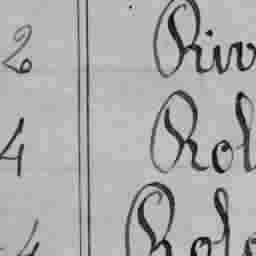 2 Riv
4 Rol
4 Rolo